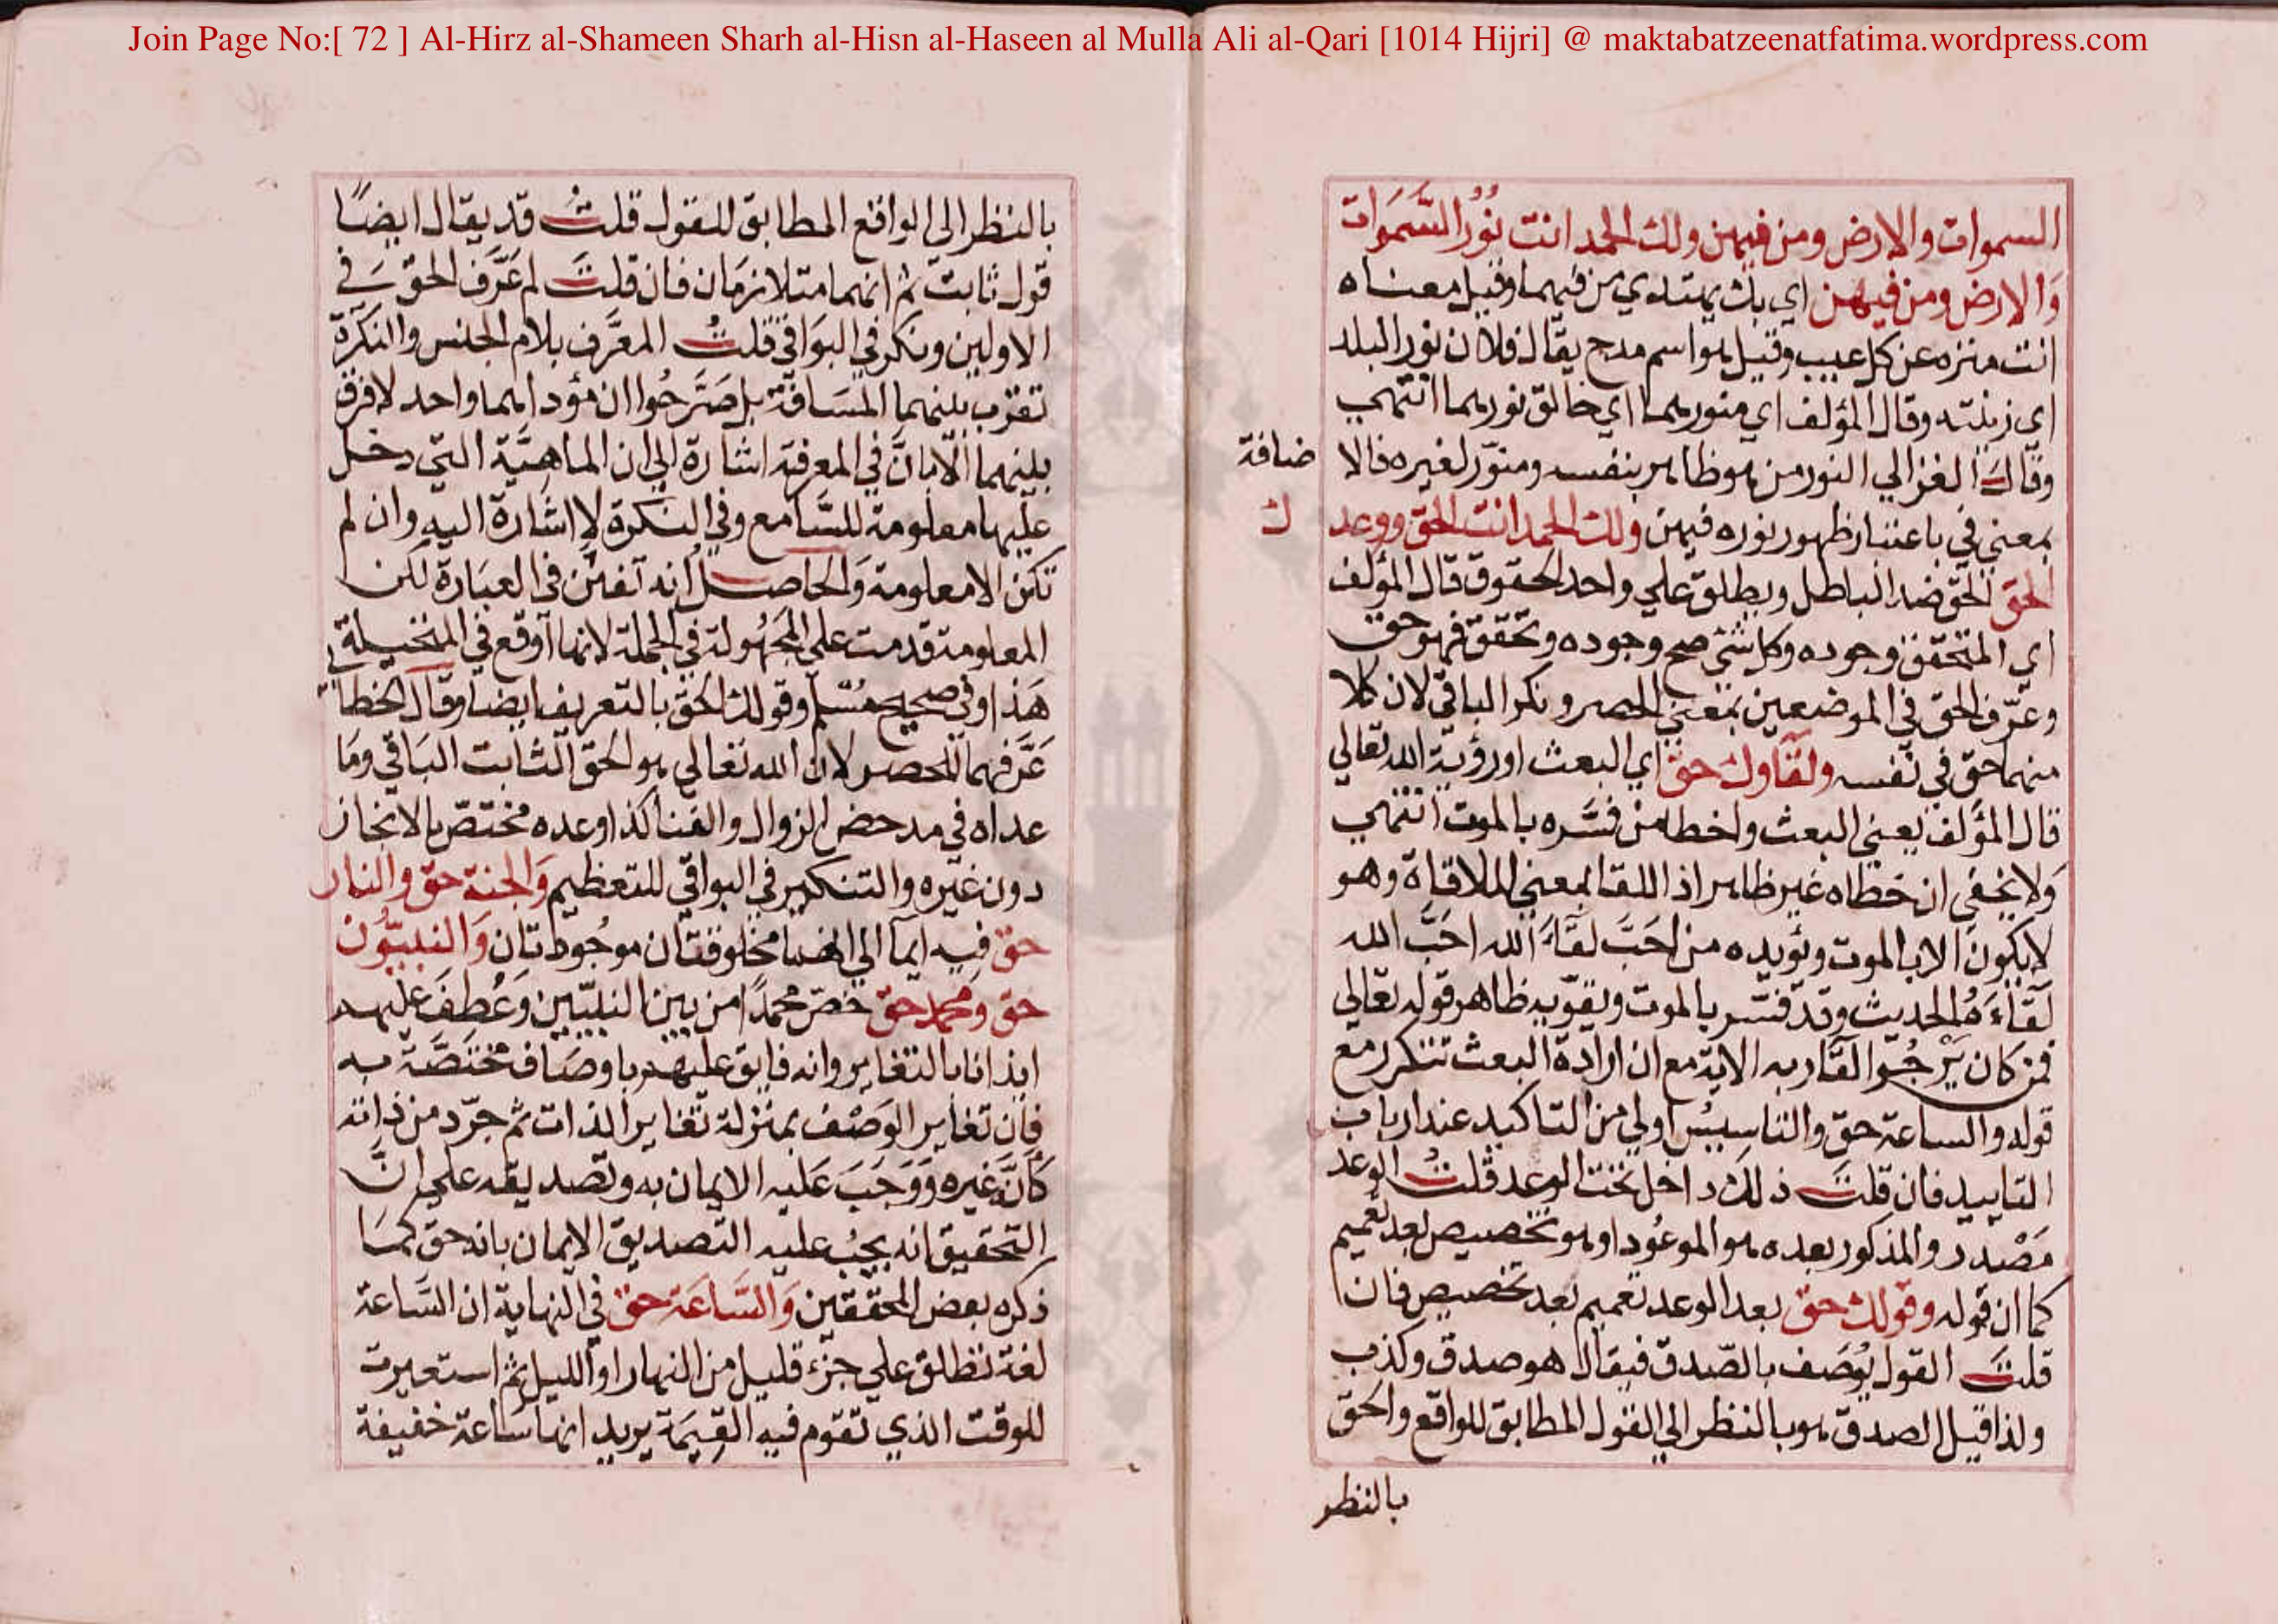 Join Page No:[ 72 ] Al-Hirz al-Shameen Sharh al-Hisn al-Haseen al Mulla Ali al-Qari [1014 Hijri] @ maktabatzeenatfatima.wordpress.com
السموات والارض ومن فيهن ولك الحمد انت نُورُ السَّمَوات
وَالارض ومن فيهن اي بك يهتدي من فيهما وقيل معناه
انت منزه عن كل عيب وقيل هو اسم مدح يقال فلان نور البلد
اي زينته وقال المؤلف اي منورهما اي خالق نورهما انتهى
وقال الغزالي النور من هو ظاهر بنفسه ومنوّر لغيره فالا ضافة
بمعنى في باعتبار ظهور نوره فيهن ولك الحمد انت الحق ووعد ك
الحق الحق ضد الباطل ويطلق على واحد الحقوق قال المؤلف
اي المتحقق وجوده وكل شئ صح وجوده وتحقق فهو حق
وعرّف الحق في الموضعين بمعنى الحصر ونكر الباقي لان كلا
منهما حق في نفسه ولقآوك حق اي البعث اورؤية الله تعالى
قال المؤلف يعني البعث واخطا من فسَّره بالموت انتهى
وَلا يخفى ان خطاه غير ظاهر اذ اللقا بمعنى الملاقاة وهو
لا يكون الا بالموت ويؤيده من احَبَّ لقَآءَ الله احَبَّ الله
لقَآءَهُ الحديث وقد فسّر بالموت ويقوّيه ظاهر قوله تعالى
فمن كان يَرْجُوا لقَآء ربه الاية مع ان ارادة البعث تتكرر مع
قوله والساعة حق والتاسيسُ اولى من التاكيد عند ارباب
التاييد فان قلتَ ذلك داخل تحت الوعد قلتُ الوعد
مَصْدر والمذكور بعده هو الموعُود او هو تخصيص بعد تعميم
كما ان قوله وقولك حق بعد الوعد تعميم بعد تخصيص فان
قلتَ القول يُوصَف بالصّدق فيقال هو صدق وكذب
ولذا قيل الصدق هو بالنظر الى القول المطابق للواقع والحق
بالنظر
بالنظر الى الواقع المطابق للقول قلتُ قد يقال ايضًا
قول ثابت ثم انهما متلازمَان فان قلتَ لم عَرَّف الحق في
الاولين ونكر في البَواقي قلتُ المعرَّف بلام الجنس والنكرَة
تقرب بينهما المسَافة بل صَرَّحُوا ان مؤداهما واحد لا فرق
بينهما الّا بانَّ في المعرفة اشارة الى ان الماهيَّة التي دخل
عليها معلومة للسَّامع وفي النكرة لا اشارة اليه وان لم
تكن الا معلومة وَالحاصل انه تفنن في العبَارة لكن
المعلومة قدمت على المجهُولة في الجملة لانها اوقع في المخيلة
هَذا وفي صحيح مُسْلم وقولك الحق بالتعريف ايضا وقال الخطابي
عَرَّفهما للحصر لان الله تعالى هو الحق الثابت البَاقي ومَا
عداه في مدحض الزوال والفنا كذا وعده مختصّ بالانجاز
دون غيره والتنكير في البواقي للتعظيم وَالجنة حق والنار
حق فيه ايمآ الى انهما مخلوقتان موجُودتان وَالنبيُّون
حق ومحمد حق خصّ محمدًا من بين النبيّين وَعُطِفَ عليهم
ايذانا بالتغاير وانه فايق عليهم باوصَاف مختصَّة به
فان تغاير الوَصْف بمنزلة تغاير الذات ثم جرّد من ذاته
كَأنَّه غيره وَوَجَبَ عَليه الايمان به وتصديقه على انَّ
التحقيق انه يجبُ عليه التصديق الايمان بانه حق كمَا
ذكره بعض المحققين وَالسَّاعَة حق في النهاية ان السَّاعة
لغة تطلق على جزء قليل من النهار او الليل ثم استعيرت
للوقت الذي تقوم فيه القيمَة يريد انها سَاعة خفيفة